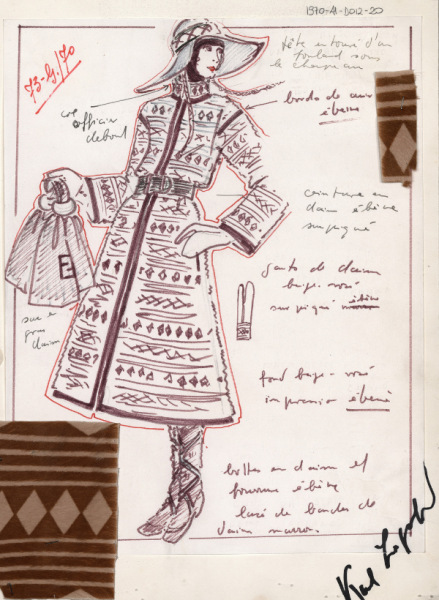 1970-A1-D012-20
73-G/70
tête entouré d'un
foulard sous
le chapeau
bords de cuir
ébène
col
officier
debout
ceinture en
daim ébène
surpiqué
gants de daim
beige-rosé
surpiqué ébène
sac en
gros
daim
fond beige-rosé
impression ébène
bottes en daim et
fourrure ébène
lacé de bandes de
daim marron.
Karl Lagerfeld